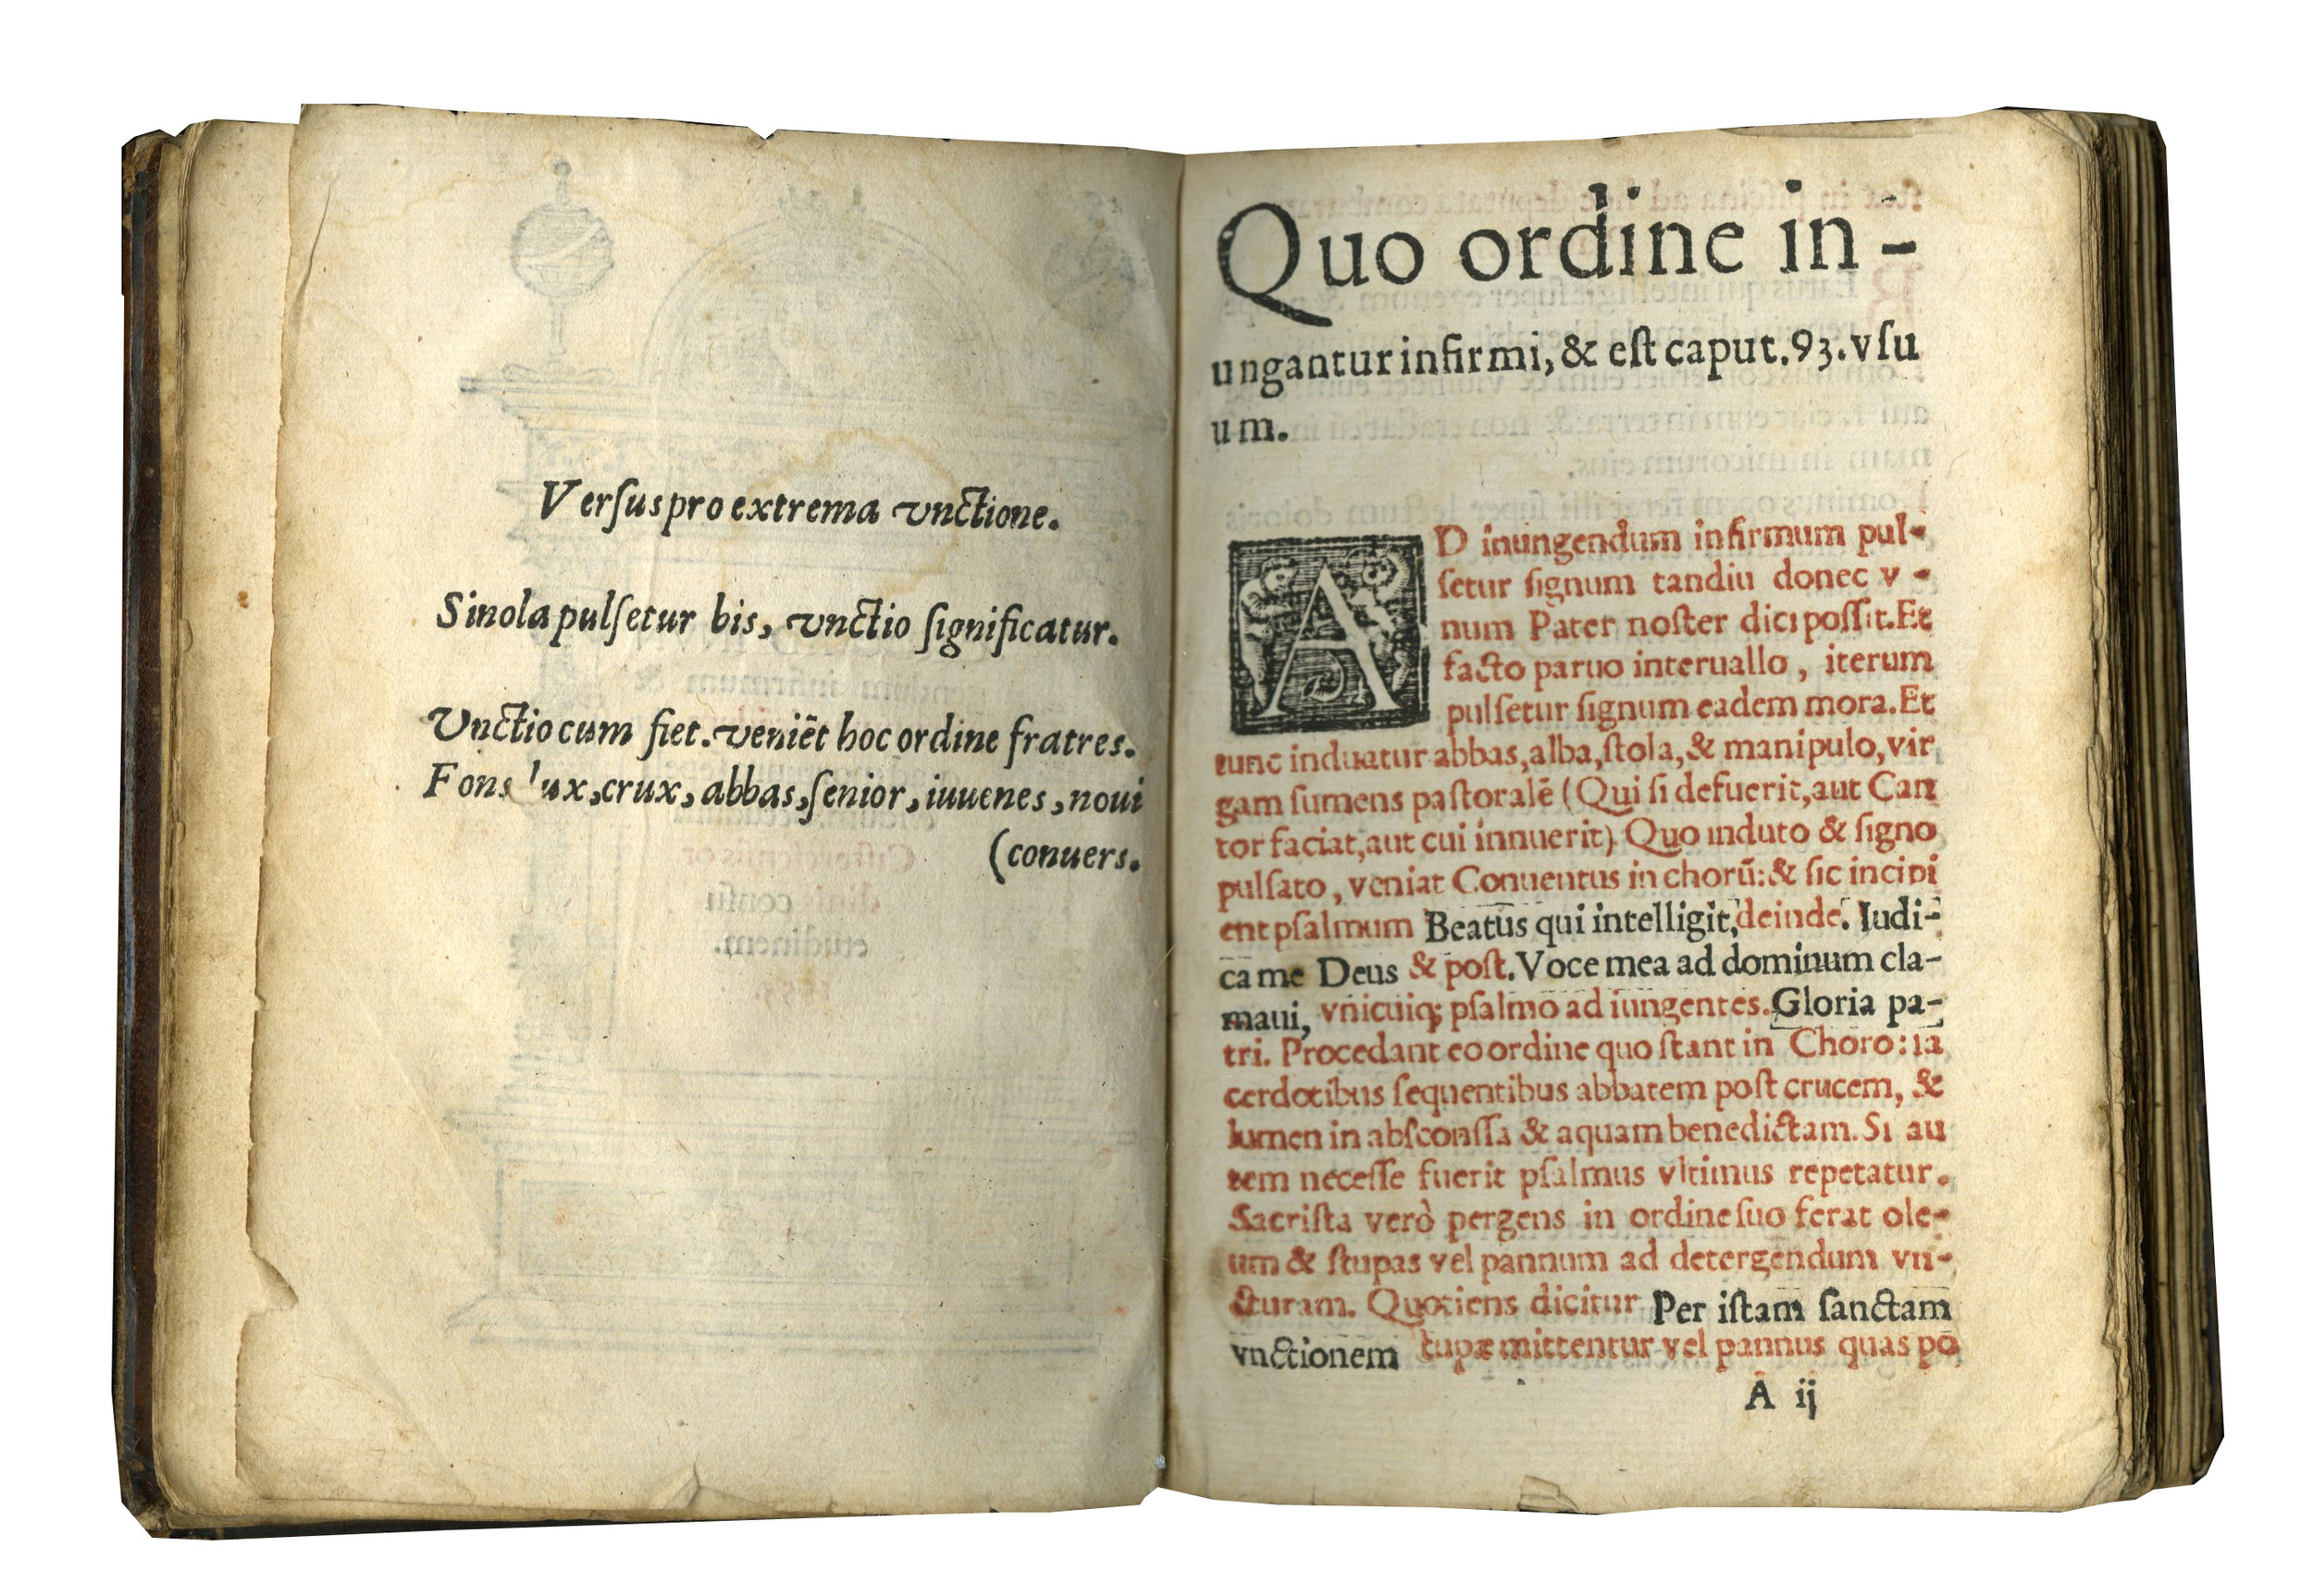 Verſus pro extrema vnctione.
Sinola pulſetur bis, vnctio ſignificatur.
Vnctio cum fiet. veniẽt hoc ordine fratres.
Fons lux, crux, abbas, ſenior, iuuenes, noui
(conuers.
Quo ordine in-
ungantur infirmi, & eſt caput. 93. vſu
um.
AD inungendum infirmum pul-
ſetur ſignum tandiu donec v-
num Pater noſter dici poſſit. Et
facto paruo interuallo, iterum
pulſetur ſignum eadem mora. Et
tunc induatur abbas, alba, ſtola, & manipulo, vir
gam ſumens paſtoralẽ (Qui ſi defuerit, aut Can
tor faciat, aut cui innuerit) Quo induto & ſigno
pulſato, veniat Conuentus in chorũ: & ſic incipi
ent pſalmum Beatus qui intelligit, deinde. Iudi-
ca me Deus & poſt. Voce mea ad dominum cla-
maui, vnicuiq; pſalmo ad iungentes. Gloria pa-
tri. Procedant eo ordine quo ſtant in Choro: ſa
cerdotibus ſequentibus abbatem poſt crucem, &
lumen in abſconſſa & aquam benedictam. Si au
tem neceſſe fuerit pſalmus vltimus repetatur.
Sacriſta verò pergens in ordine ſuo ferat ole-
um & ſtupas vel pannum ad detergendum vn-
cturam. Quotiens dicitur Per iſtam ſanctam
vnctionem tupæ mittentur vel pannus quas pō
A ij